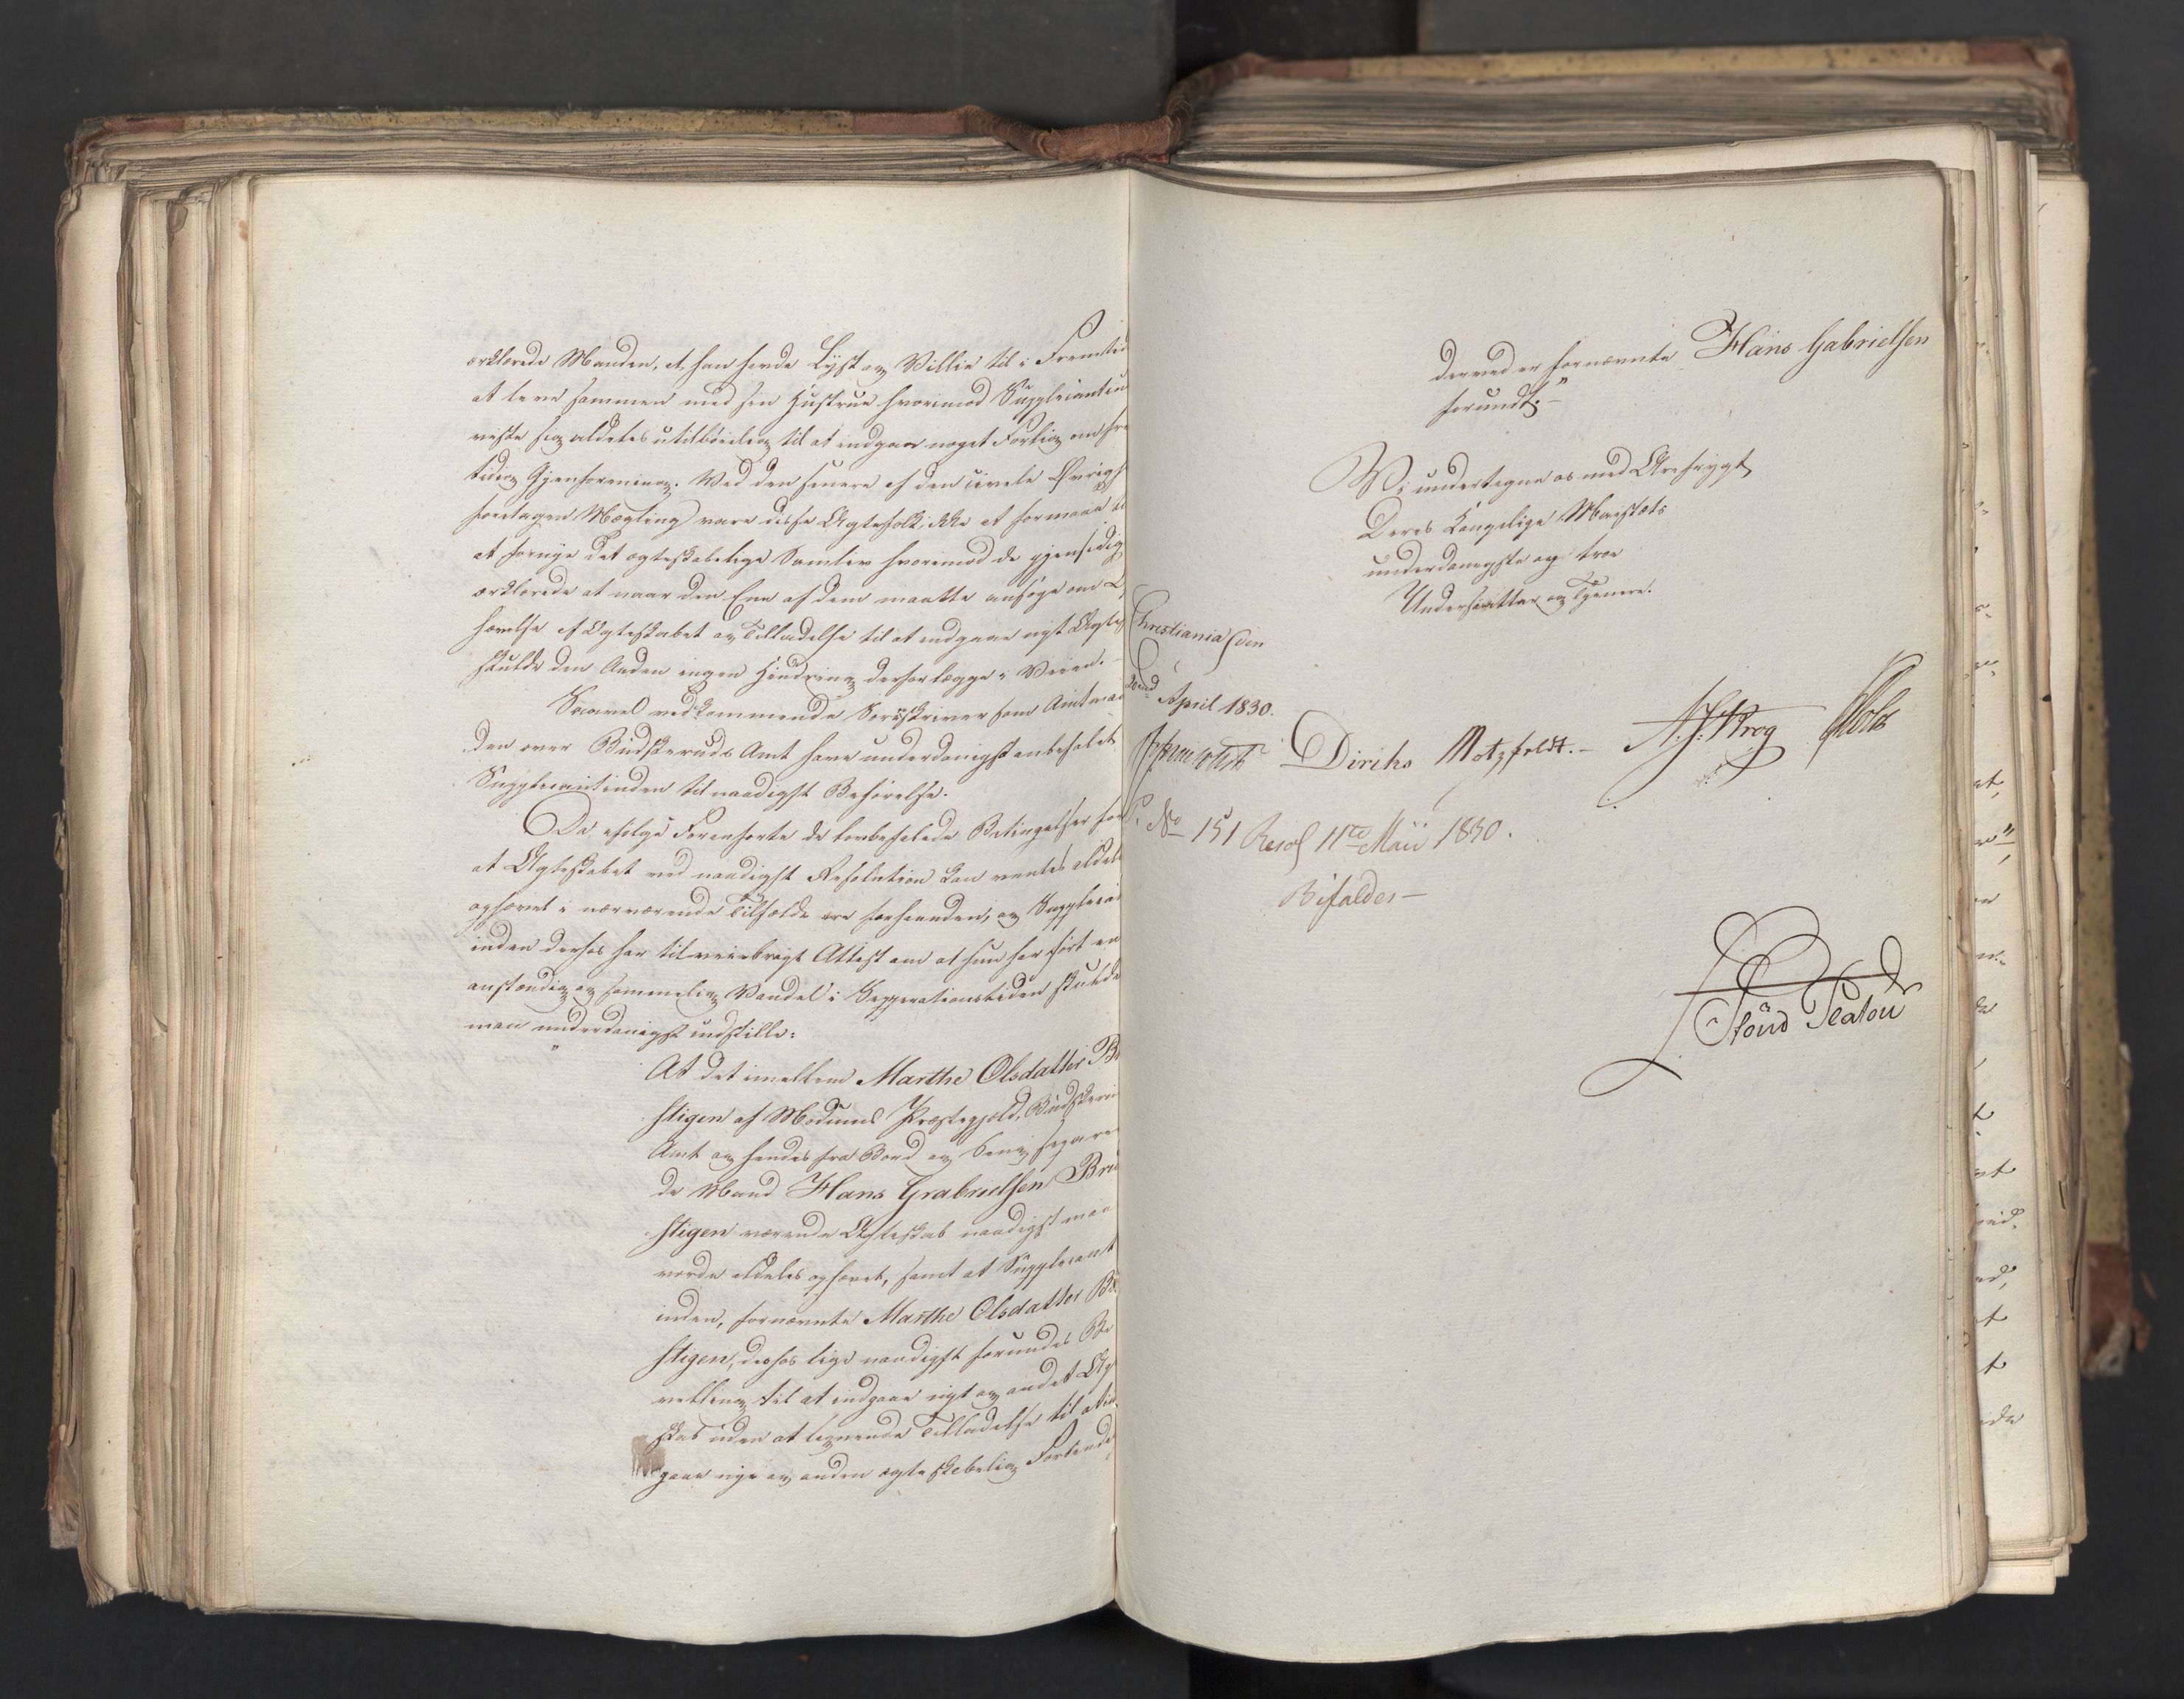 erklærede Manden, at han havde Lyst og Villie til i Fremtid
at leve sammen med sin Hustrue hvorimod Supplicantin
viste sig aldeles utilbøielig til at indgaae noget Forlig om fre
tidig Gjenforening. Ved den senere af den civile Øvrigh
foretagen Mægling vare disse Ægtefolk ikke at formaae ti
at fornye det ægteskabelige Samliv hvorimod de gjensidig
erklærede at naar den Ene af dem maatte ansøge om O
hævelse af Ægteskabet og Tilladelse til at indgaae nyt Ægte
skulde den Anden ingen Hindring derfor lægge i Veien.
Saavel vedkommende Sorenskriver som Amtman
den over Budskeruds Amt have underdanigst anbefalet
Supplicantinden til naadigst Bønhørelse.
Da ifølge Foranførte de lovbefalede Betingelser for
at Ægteskabet ved naadigst Resolution kan ventes aldel
ophævet i nærværende Tilfælde ere forhaanden, og Supplican
inden derhos har tilveiebragt Attest om at hun har ført en
anstændig og sømmelig Vandel i Separationstiden skulde
man underdanigst indstille:
"At det imellem Marthe Olsdatter B
stigen af Modums Præstegjeld, Budskeru
Amt og hendes fra Bord og Seng separe
de Mand Hans Gabrielsen Bre
stigen værende Ægteskab naadigst maa
vorde aldeles ophævet, samt at Supplicant
inden, fornævnte Marthe Olsdatter B
stigen, derhos lige naadigst forundes Be
villing til at indgaae nyt og andet Æg
skab uden at lignende Tilladelse til at in
gaae nye og anden ægteskabelig Forbinde
derved er fornævnte Hans Gabrielsen
forundt."
Vi undertegne os med Ærefrygt
Deres Kongelige Maiestæts
underdanigste og troe
Undersaatter og Tjenere.
Christiania den
22nd April 1830.
Diriks Motzfeldt. Krog Holst
No 151 Resol 11te Maii 1830.
Bifaldes
Stoud Platou